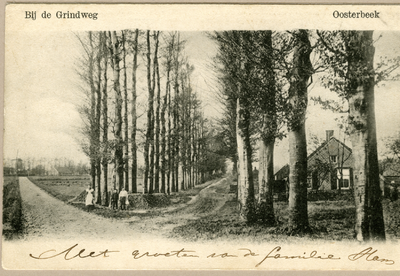 Bij de Grindweg Oosterbeek
Met groeten van de familie